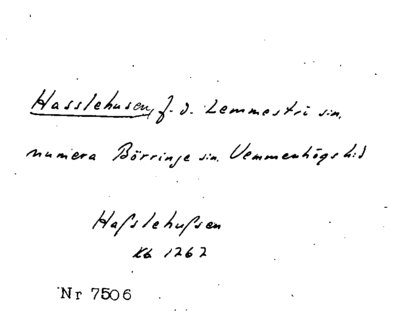 Hasslehusen, f.d. Lemmeströ sn,
numera Börringe sn. Vemmenhögs hd
Haſslehuſsen
Kb 1262
Nr 7506